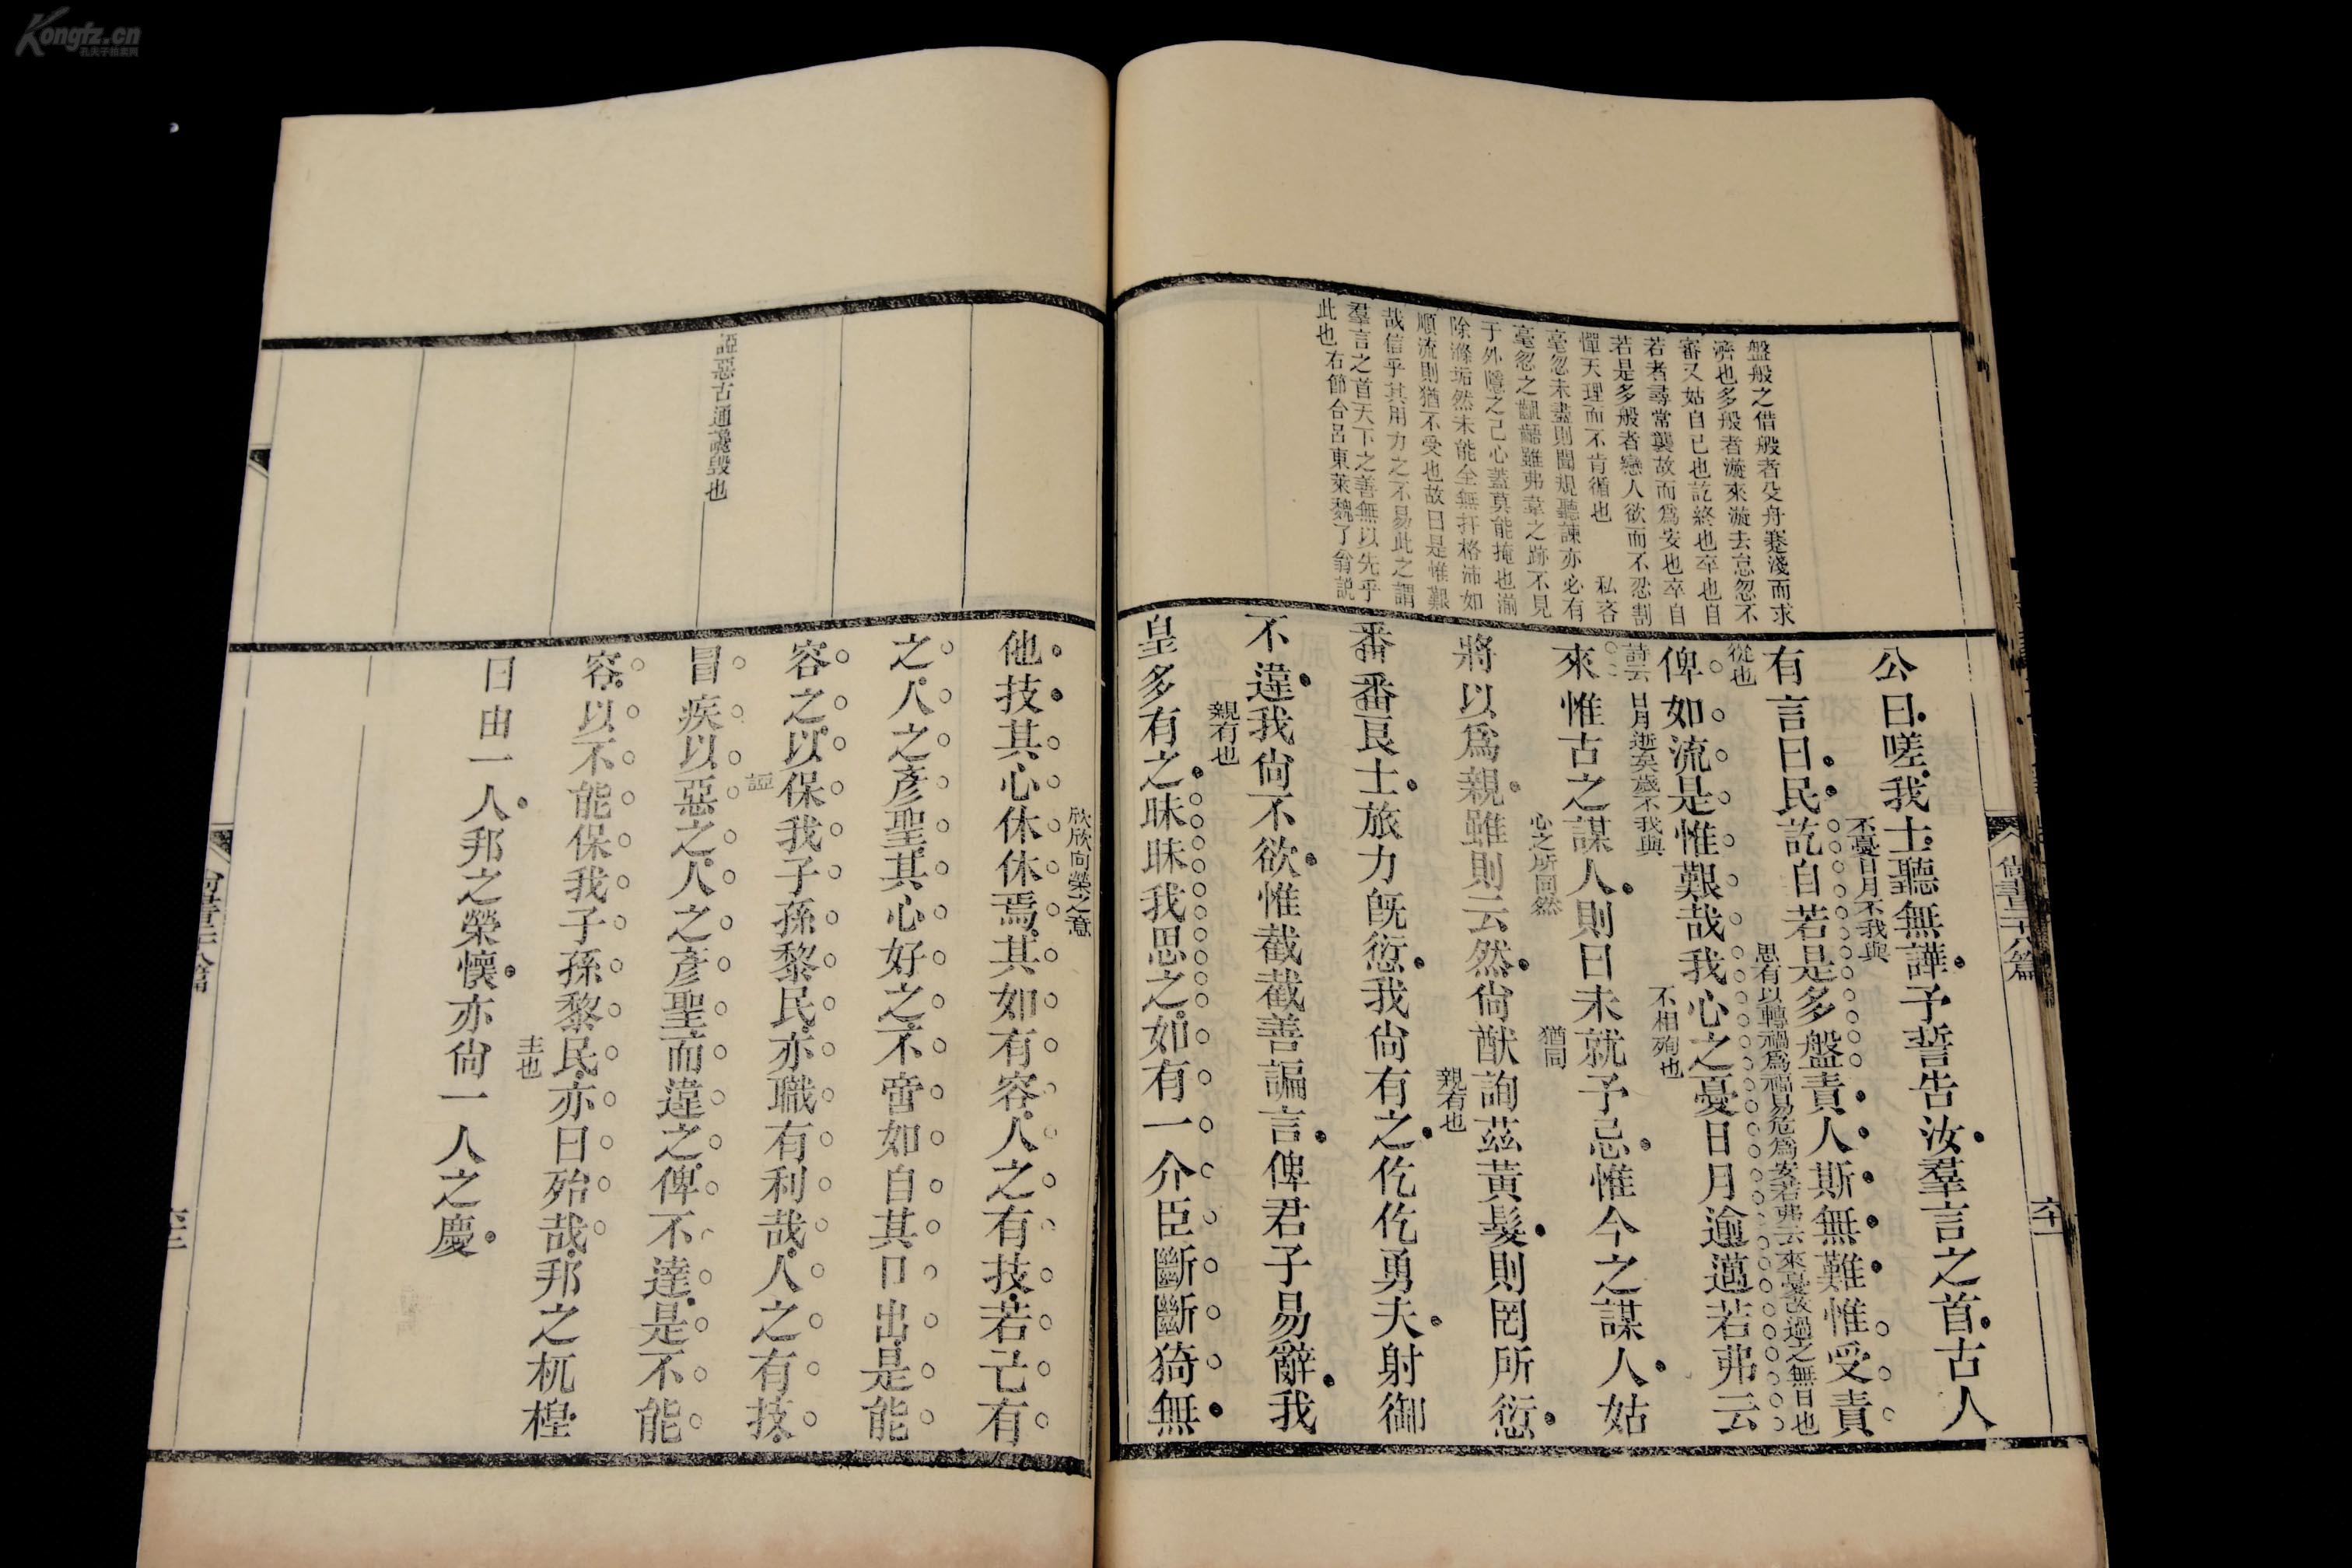 Kongfz.cn
孔夫子拍卖网
盤般之借般者殳舟蹇淺而求
濟也多般者漩來漩去怠忽不
審又姑自已也訖終也卒也自
若者尋常襲故而爲安也卒自
若是多般者戀人欲而不忍割
憚天理而不肯循也 私吝
毫忽未盡則聞規聽諫亦必有
毫忽之齟齬雖弗韋之跡不見
于外隱之己心蓋莫能掩也湔
除滌垢然未能全無扞格沛如
順流則猶不受也故曰是惟艱
哉信乎其用力之不易此之謂
羣言之首天下之善無以先乎
此也右節台呂東萊魏了翁説
公曰嗟我士聽無譁予誓告汝羣言之首古人
不憂日月不我與
有言曰民訖自若是多盤責人斯無難惟受責
從也
思有以轉禍爲福易危爲安若弗云來憂改過之無日也
俾如流是惟艱哉我心之憂日月逾邁若弗云
詩云日月逝矣歲不我與
不相殉也
來惟古之謀人則曰未就予忌惟今之謀人姑
心之所同然
猶同
將以爲親雖則云然尙猷詢茲黃髮則罔所愆
親有也
番番良士旅力旣愆我尙有之仡仡勇夫射御
不違我尙不欲惟截截善諞言俾君子易辭我
親有也
皇多有之昧昧我思之如有一介臣斷斷猗無
尙書二十八篇
諲惡古通讒毀也
欣欣向榮之意
他技其心休休焉其如有容人之有技若己有
之人之彥聖其心好之不啻如自其口出是能
容之以保我子孫黎民亦職有利哉人之有技
冒疾以惡之人之彥聖而違之俾不達是不能
容以不能保我子孫黎民亦曰殆哉邦之杌楻
主也
曰由一人邦之榮懷亦尙一人之慶